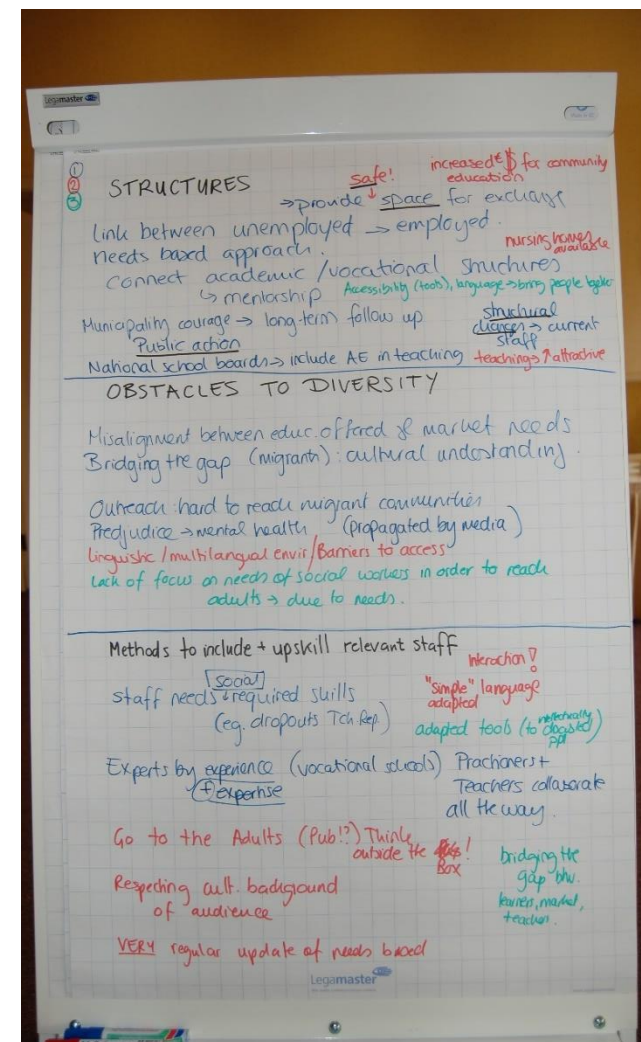 Legamaster
①
②
③
STRUCTURES
safe!
increased € $ for community education
→ provide space for exchange
Link between unemployed → employed.
needs based approach.
nursing homes available
connect academic / vocational structures
↳ mentorship
Accessibility (tools), language → bring people together
Municipality courage → long-term follow up
structural changes → current staff
Public action
National school boards → include AE in teaching
teaching → ↑ attractive
OBSTACLES TO DIVERSITY
Misalignment between educ. offered & market needs
Bridging the gap (migrants): cultural understanding.
Outreach: hard to reach migrant communities
Predjudice → mental health (propagated by media)
Linguistic / multilangual envir / Barriers to access
Lack of focus on needs of social workers in order to reach
adults → due to needs.
Methods to include + upskill relevant staff
Interaction!
social
Staff needs + required skills
"simple" language
adapted
(eg. dropouts Tch. Rep.)
adapted tools (to ppl)
Experts by experience (vocational schools)
+ expertise
Practioners +
Teachers collaborate
all the way.
Go to the Adults (Pub!?) Think
outside the
Box!
bridging the
gap btw.
learners, market,
teachers.
Respecting cult. background
of audience
VERY regular update of needs based
Legamaster